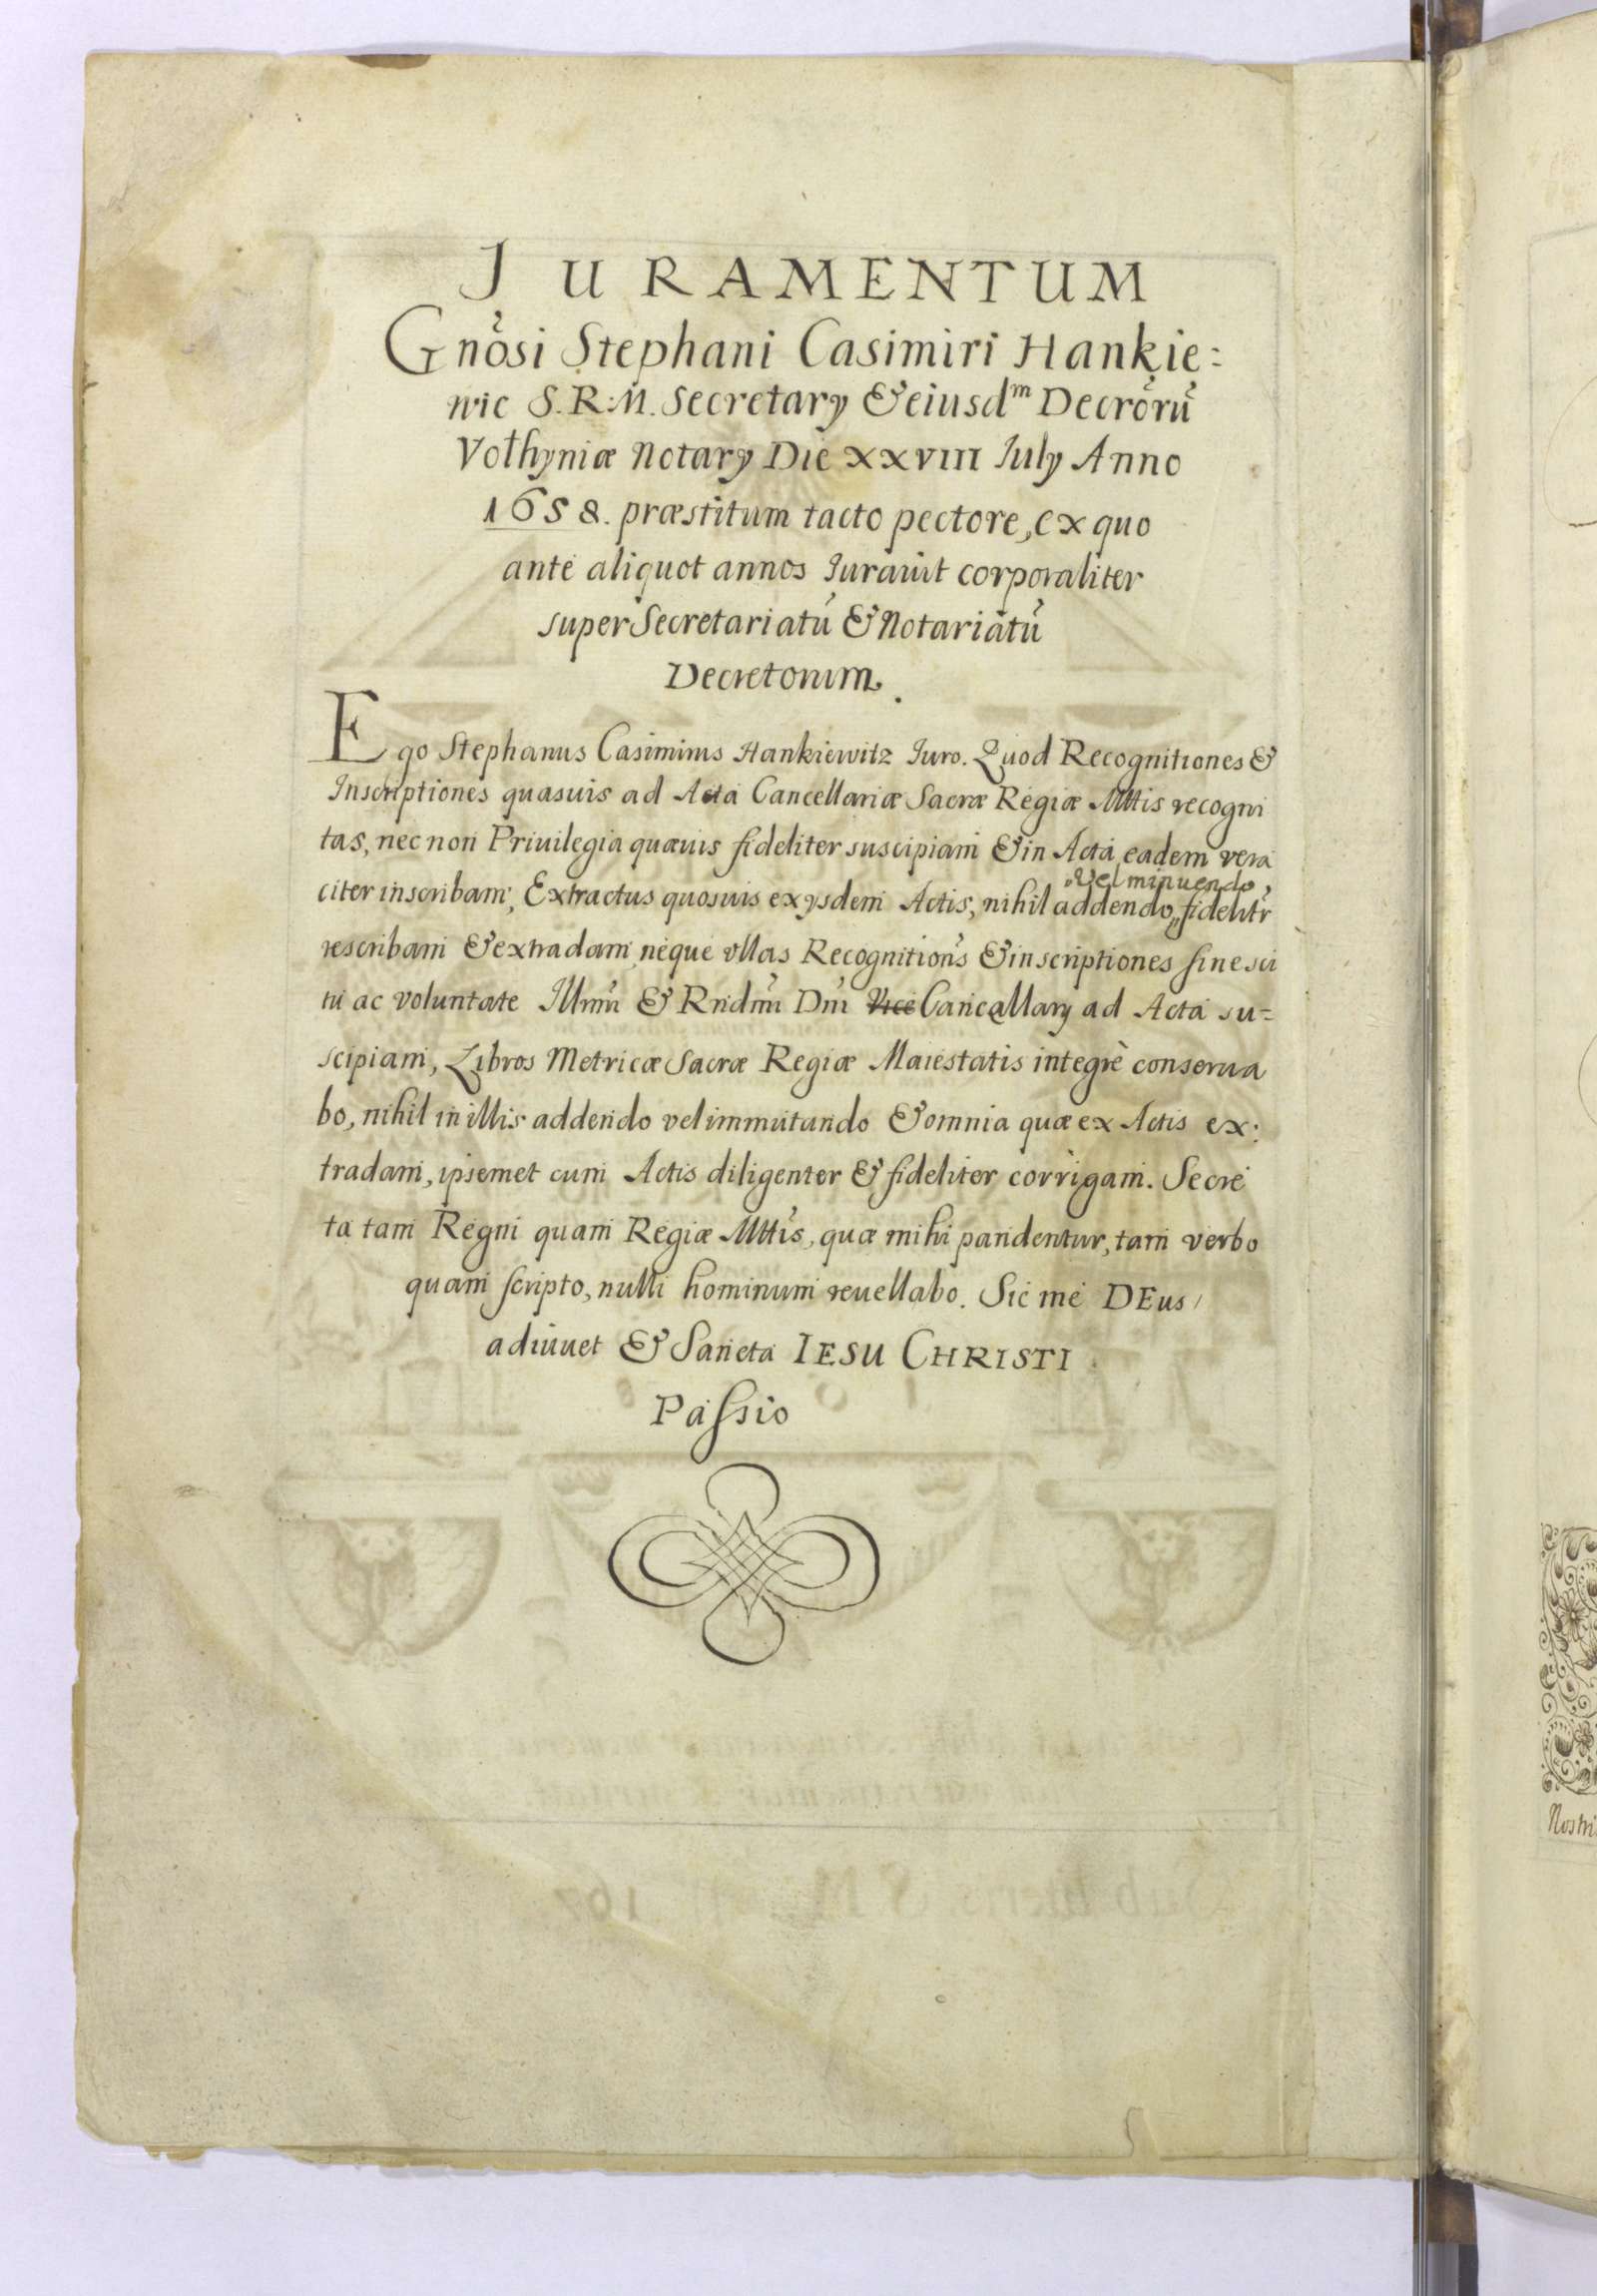 JURAMENTUM
Gnosi Stephani Casimiri Hankie=
wic S.R.M. Secretary & eiusdm Decroru
Volhyniæ Notary Die XXVIII July Anno
1658. præstitum tacto pectore, ex quo
ante aliquot annos Iurauit corporaliter
super Secretariatu & Notariatu
Decretorum.
Ego Stephanus Casimirus Hankiewitz Iuro. Quod Recognitiones &
Inscriptiones quasuis ad Acta Cancellariæ Sacræ Regiæ Mttis recogni
tas, nec non Priuilegia quæuis fideliter suscipiam & in Acta eadem vera
citer inscribam; Extractus quosuis ex ysdem Actis, nihil addendo „vel minuendo, fidelitr
rescribam & extradam neque vllas Recognitions & inscriptiones sine sci
tu ac voluntate Illmi & Rndmi Dni Vice Cancellary ad Acta su=
scipiam, Libros Metricæ Sacræ Regiæ Maiestatis integrè conserua
bo, nihil in illis addendo vel immutando & omnia quæ ex Actis ex:
tradam, ipsemet cum Actis diligenter & fideliter corrigam. Secre
ta tam Regni quam Regiæ Mttis, quæ mihi pandentur, tam verbo
quam scripto, nulli hominum reuellabo. Sic me DEus
adiuuet & Sancta IESU CHRISTI
Passio
Nostri